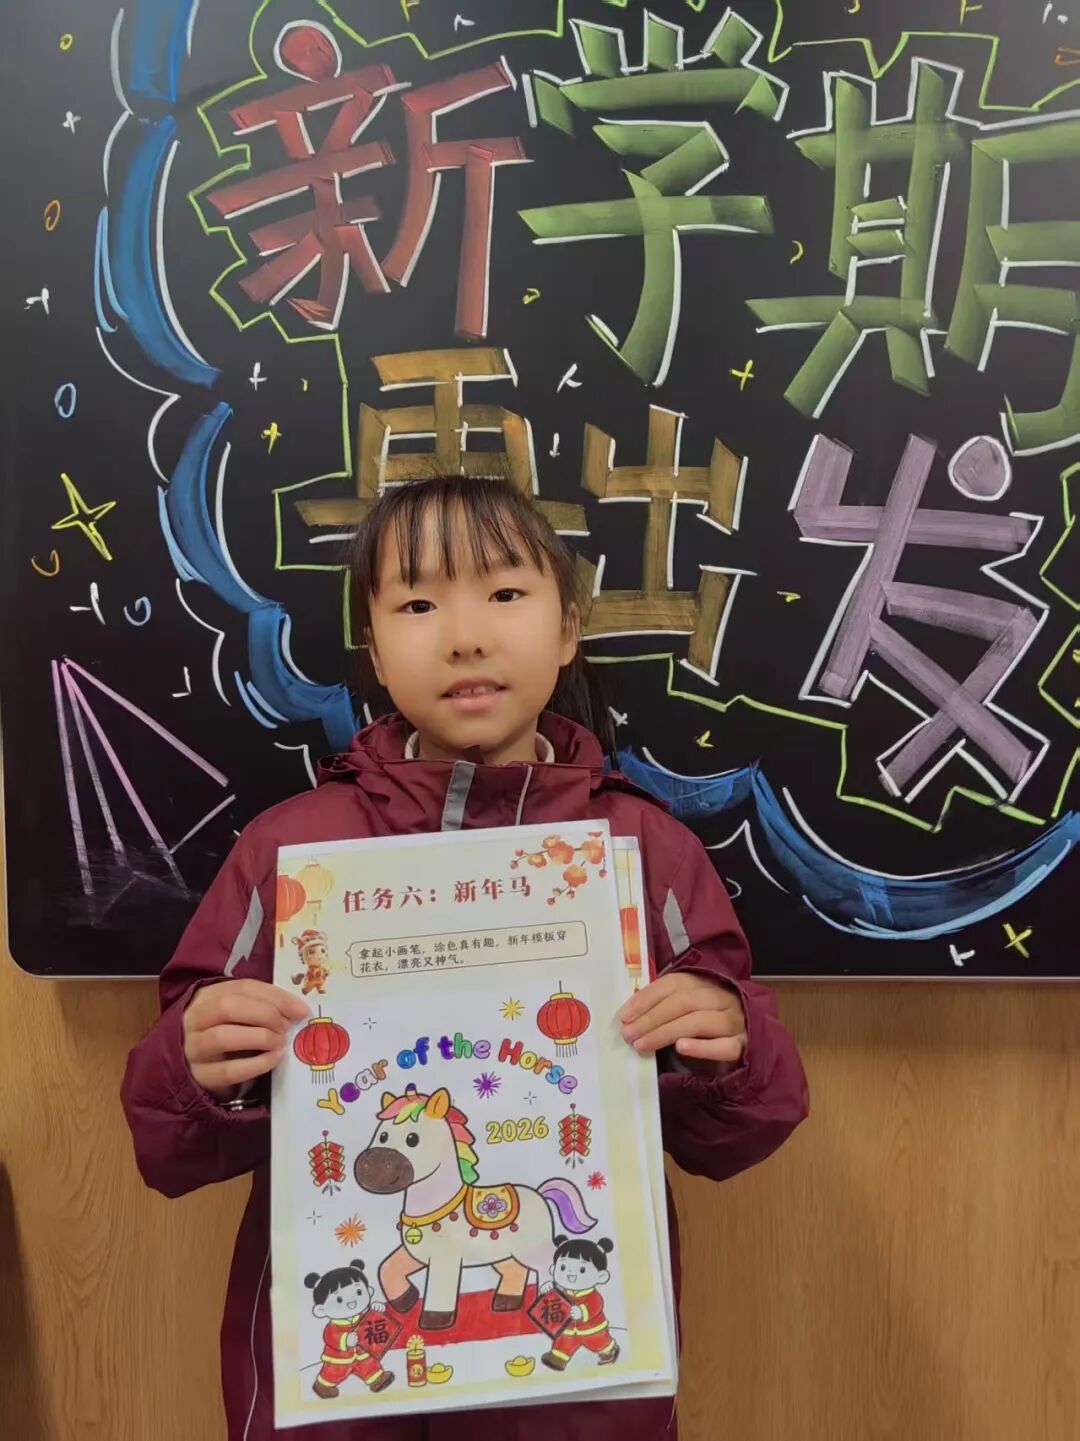 新学期
再出发
任务六：新年马
拿起小画笔，涂色真有趣，新年模板穿
花衣，漂亮又神气。
Year of the Horse
2026
福
福